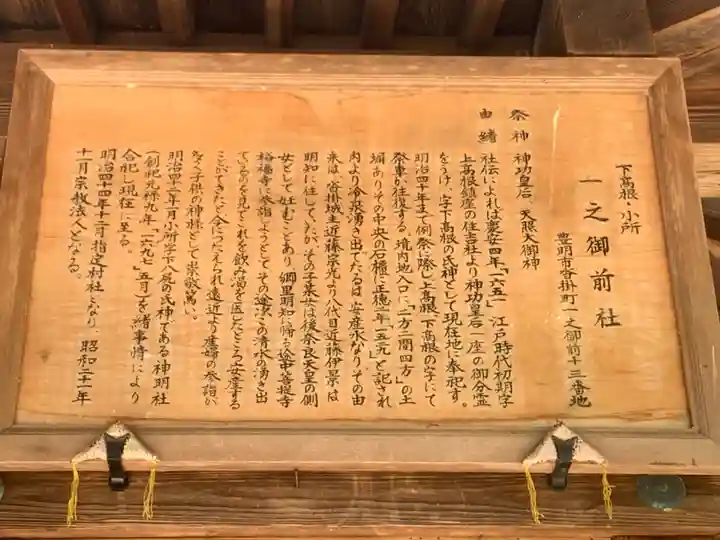 下高根・小所
一之御前社
豊明市沓掛町一之御前十三番地
祭神 神功皇后、天照大御神
由緒 社伝によれば慶安四年「一六五一」江戸時代初期字
上高根鎮座の住吉社より神功皇后一座の御分霊
をうけ、字下高根の氏神として現在地に奉祀す。
明治四十年まで例祭に際し上高根、下高根の字にて
祭車が往復する、境内地入口に「二方二間四方」の土
堀ありその中央の石標に正徳一年「一五一九」と記され
内より冷泉湧き出てたるは安産水なりその由
来は、沓掛城主近藤宗光より八代目近藤伊景は
明知に住していたがその子菜女は後奈良天皇の側
女として妊むことあり郷里明知に帰る途中菩提寺
裕福寺に参詣しようとして、その途次この清水の湧き出
ているのを見てこれを飲み渇を医したところ安産する
ことができたと今につたえられ遠近より産婦の参詣が
多く子供の神様として崇敬篤い。
明治四十二年一月小所字下八反の氏神である神明社
(創祀元禄九年「一六九七」五月)を緒事情により
合祀し現在に至る。
明治四十四年十二月指定村社となり、昭和二十一年
十一月宗教法人となる。